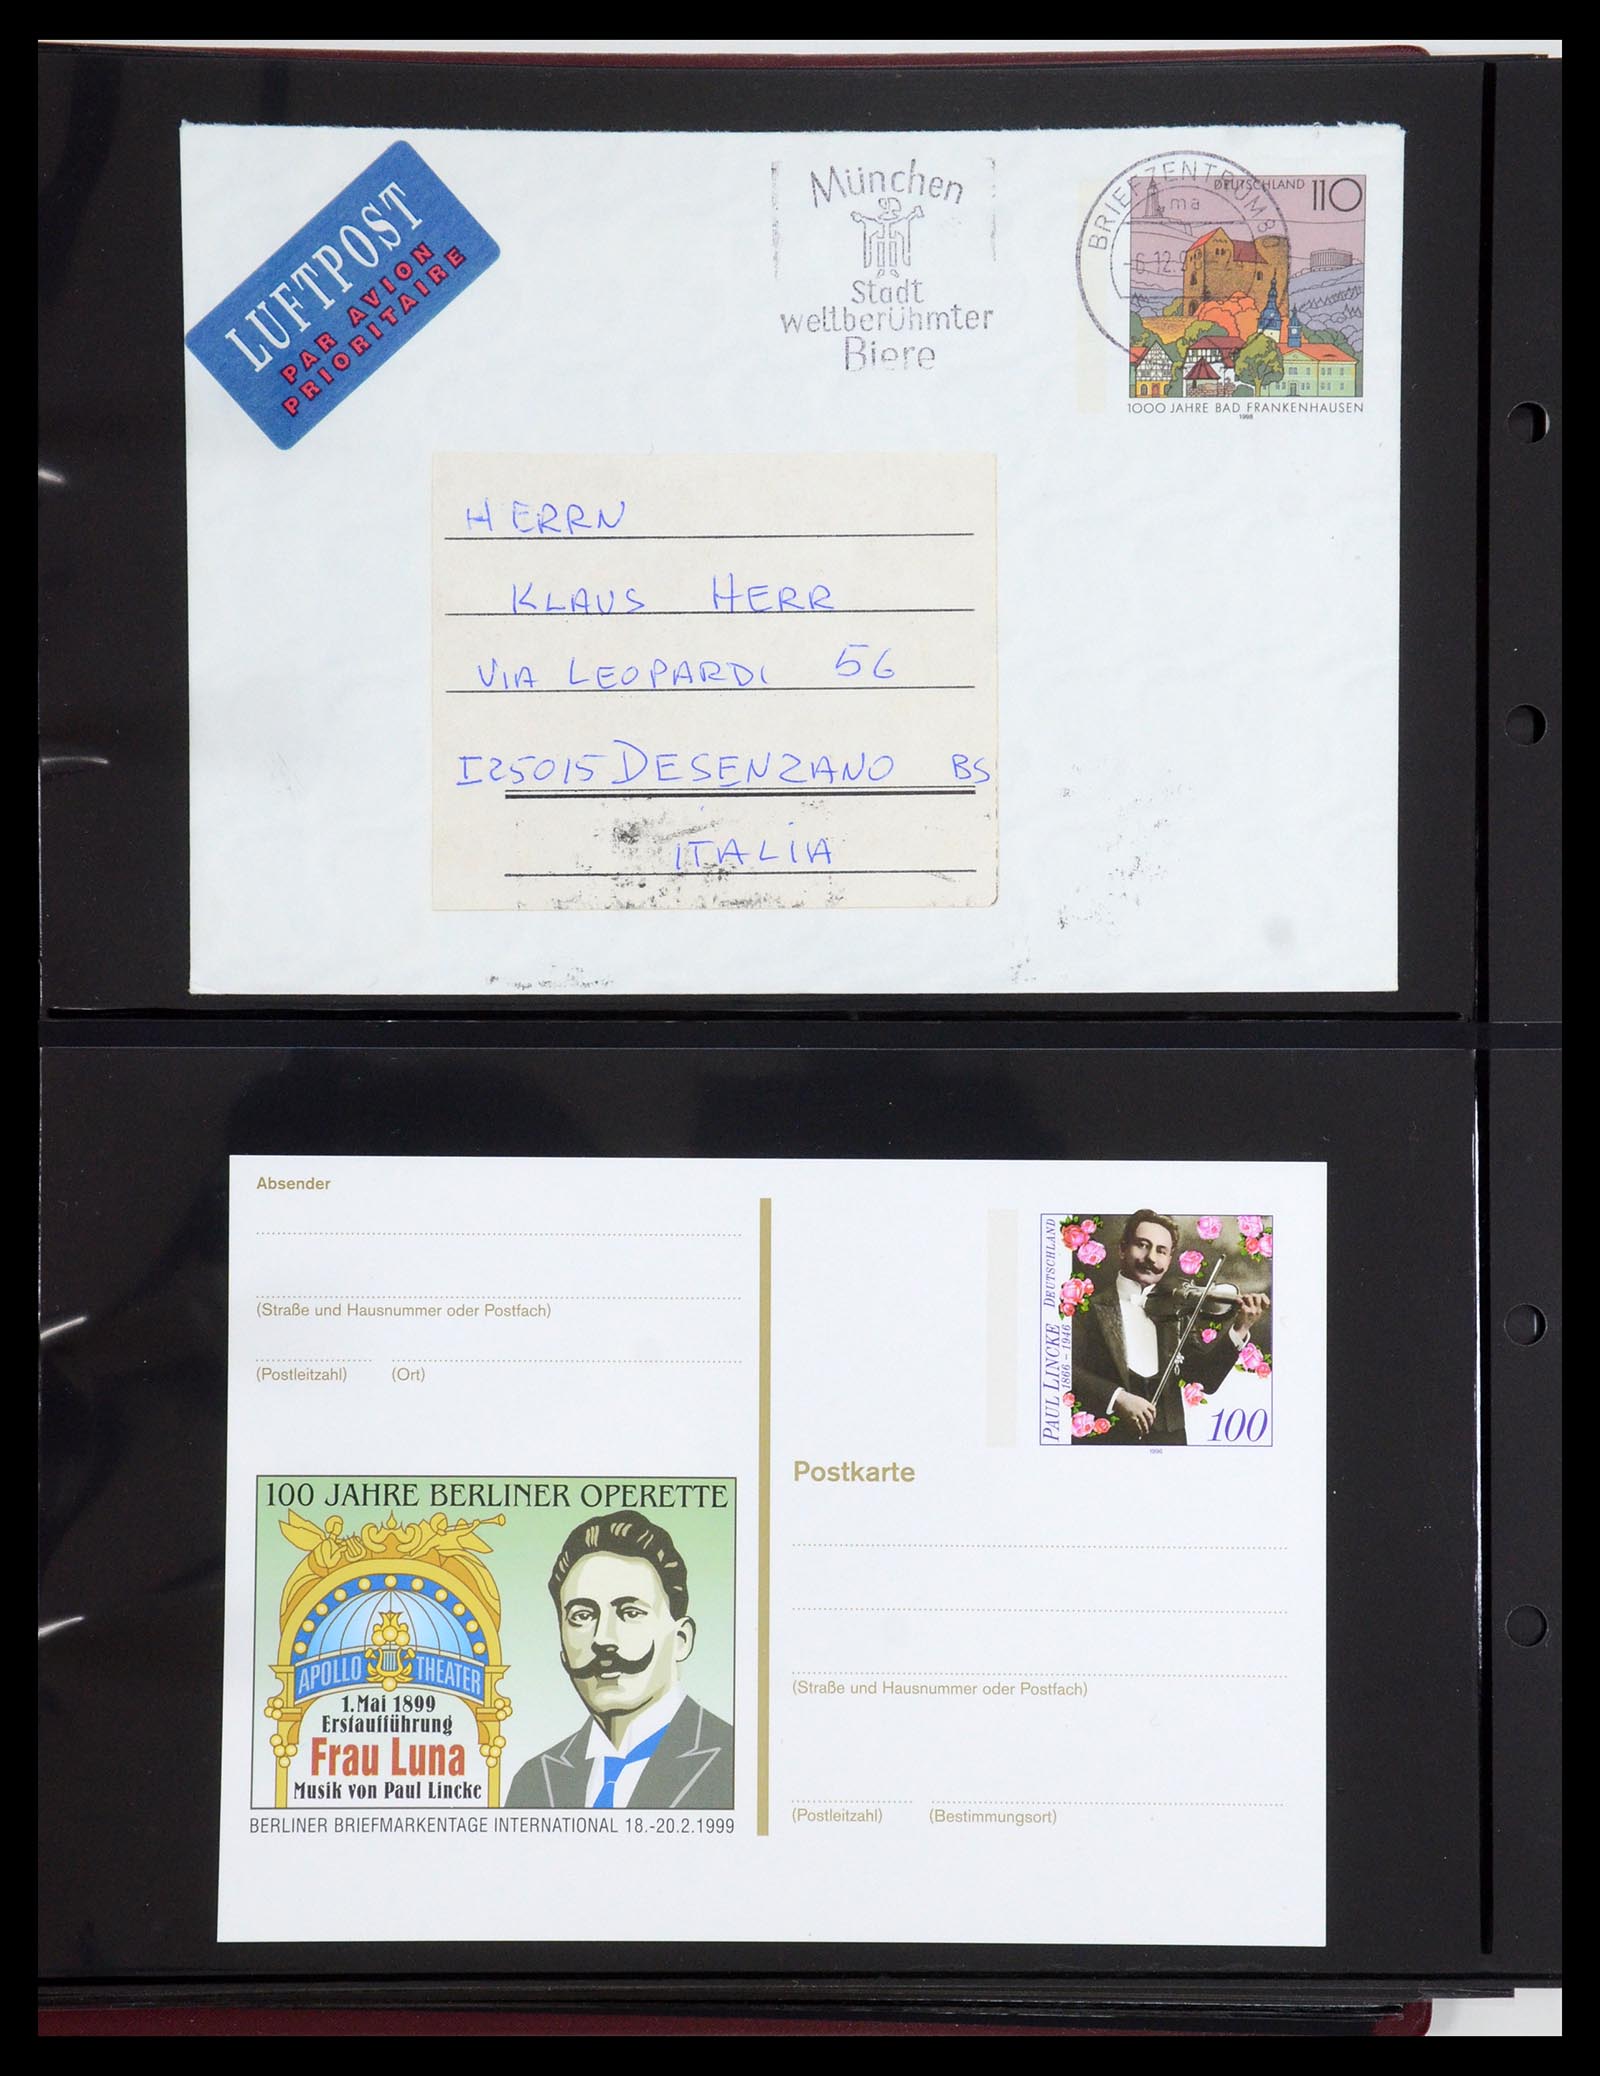 LUFTPOST
PAR AVION
PRIORITAIRE
München
Stadt
weltberühmter
Biere
BRIEFZENTRUM 8
ma
-6.12.9
DEUTSCHLAND 110
1000 JAHRE BAD FRANKENHAUSEN
1998
HERRN
KLAUS HERR
VIA LEOPARDI 56
I25015 DESENZANO BS
ITALIA
Absender
(Straße und Hausnummer oder Postfach)
(Postleitzahl) (Ort)
PAUL LINCKE DEUTSCHLAND
1866 – 1946
100
1996
Postkarte
100 JAHRE BERLINER OPERETTE
APOLLO THEATER
1. Mai 1899
Erstaufführung
Frau Luna
Musik von Paul Lincke
BERLINER BRIEFMARKENTAGE INTERNATIONAL 18.-20.2.1999
(Straße und Hausnummer oder Postfach)
(Postleitzahl) (Bestimmungsort)